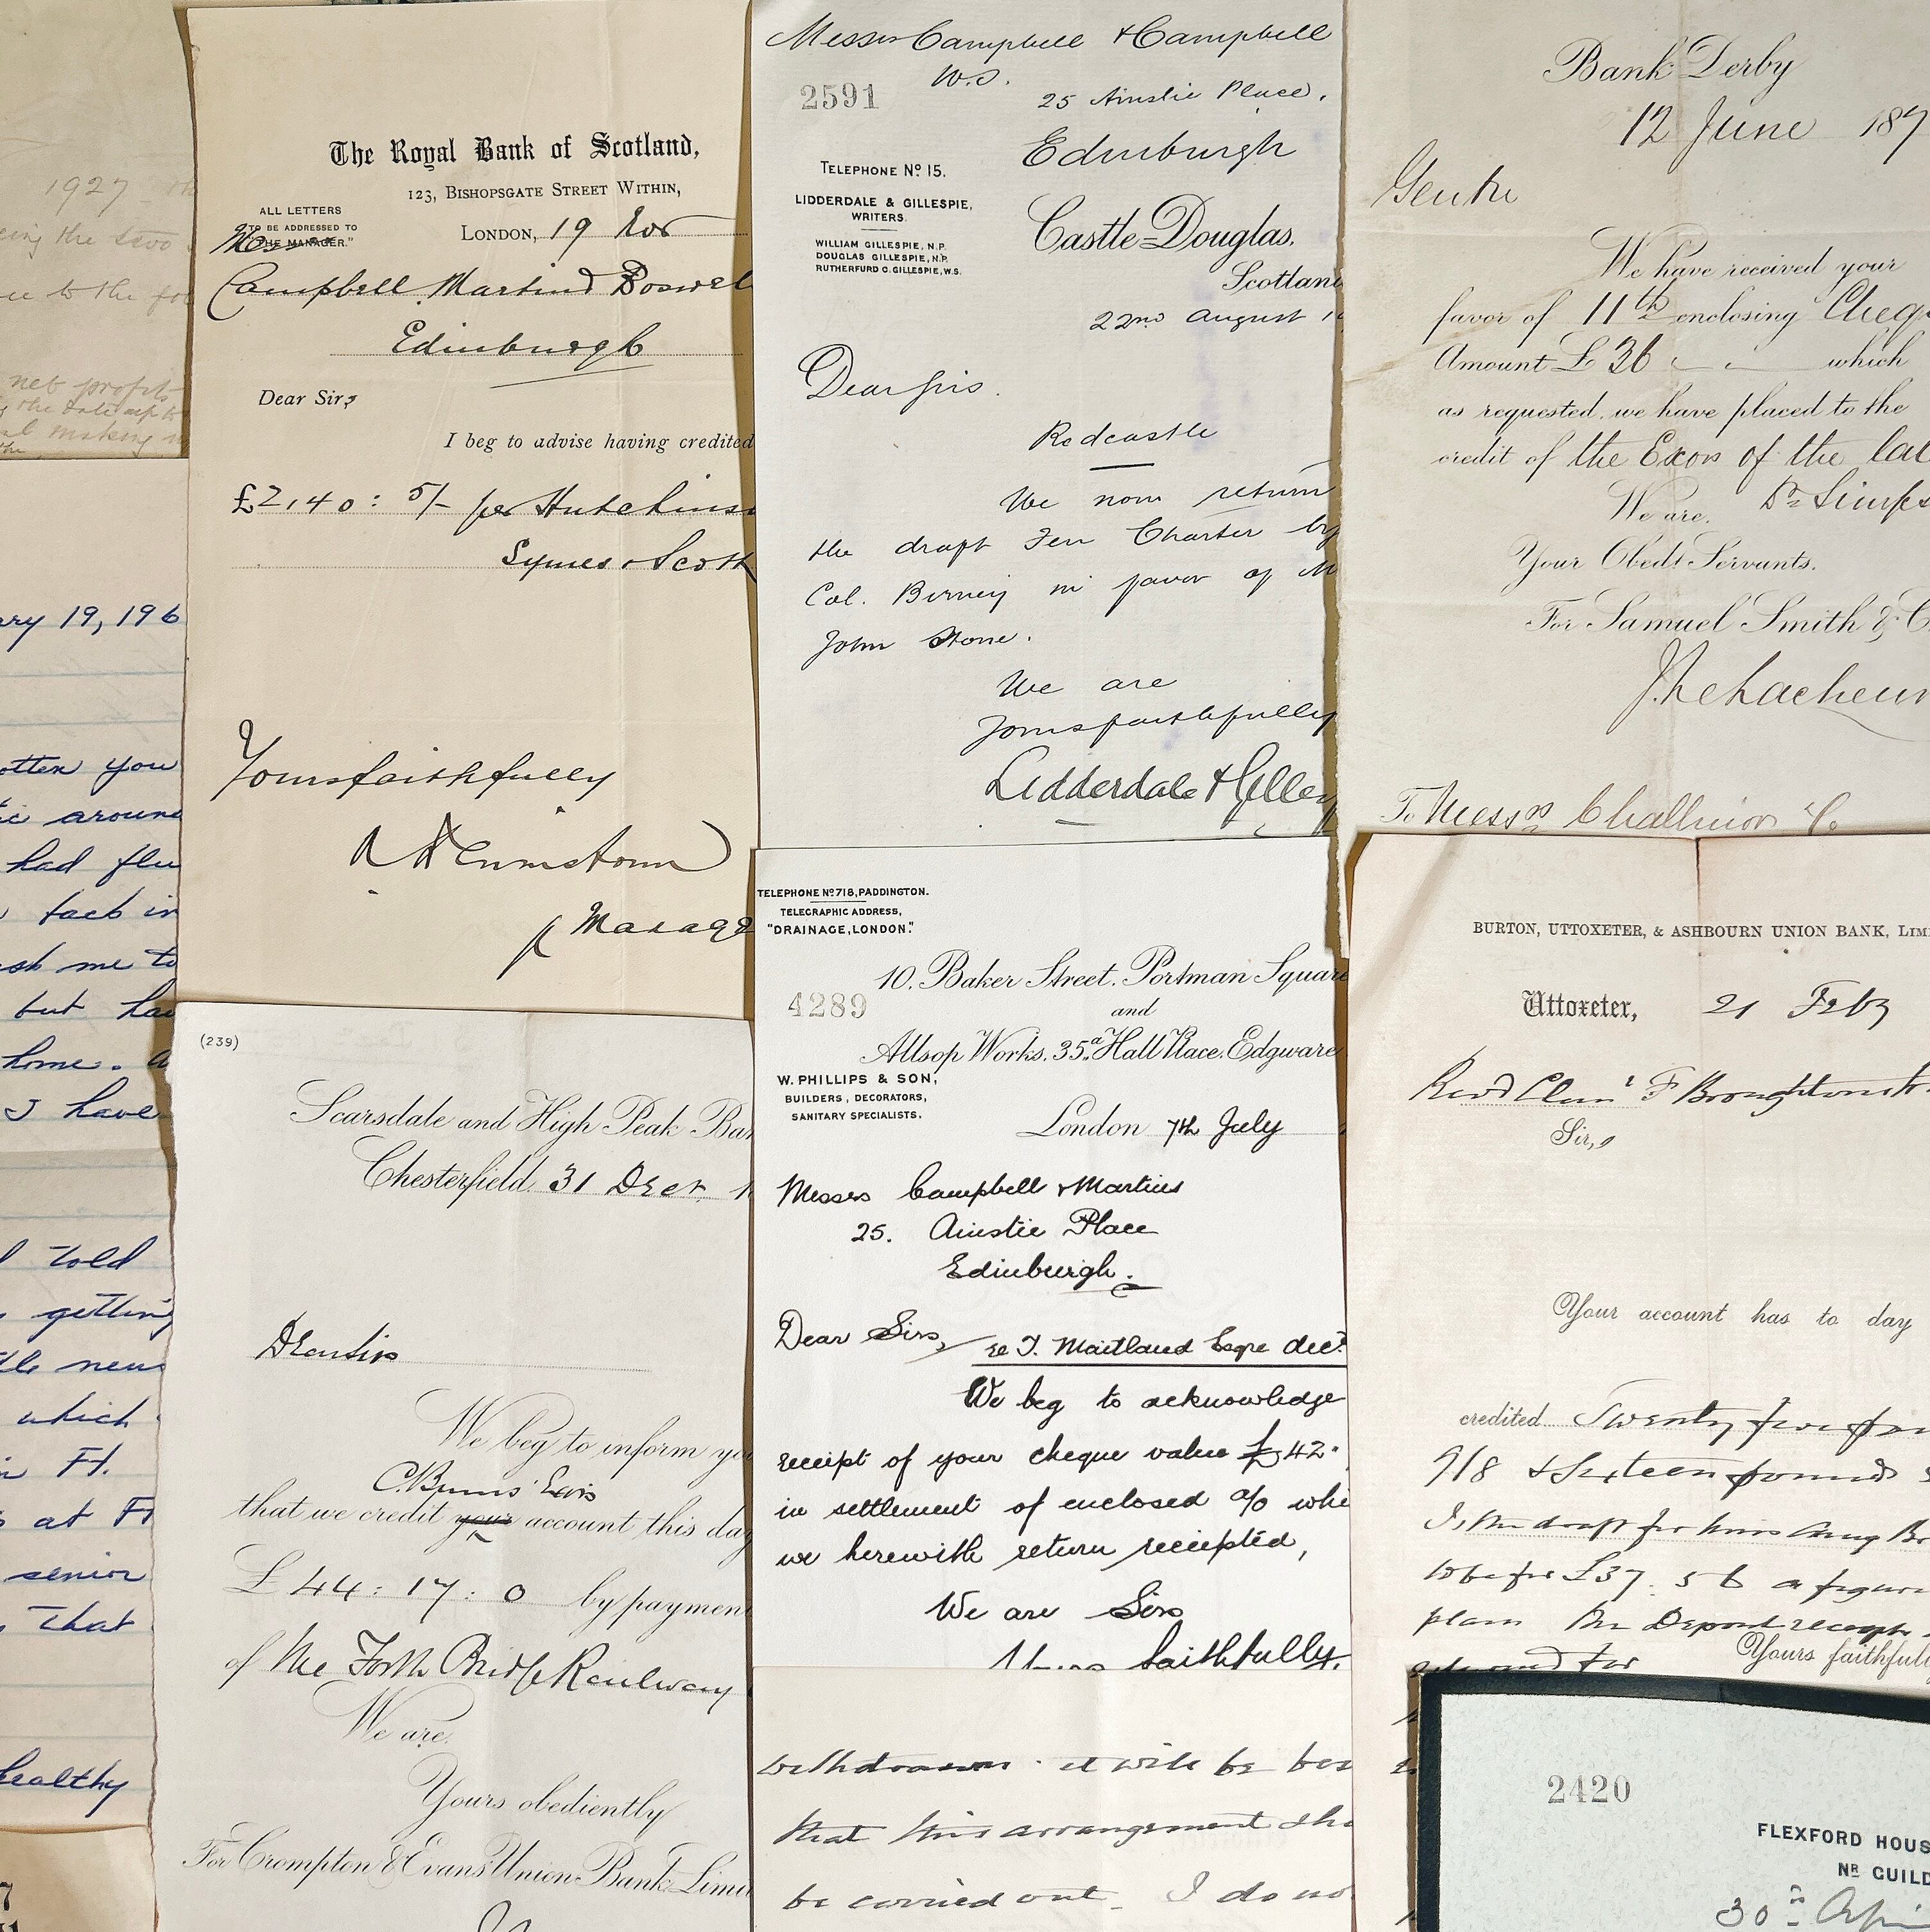 1927
ing the two
net profit
ry 19, 196
otten you
ic around
had flu
back in
ask me to
but ha
home. a
I have
told
getting
news
which
in Ft.
s at Ft
senior
That
healthy
The Royal Bank of Scotland,
123, BISHOPSGATE STREET WITHIN,
ALL LETTERS
TO BE ADDRESSED TO
"THE MANAGER."
LONDON, 19 Nov
Messrs
Campbell Martin & Boswel
Edinburgh
Dear Sirs
I beg to advise having credited
£2,140 : 5/- per Hutchins
Symes & Scott
Yours faithfully
p Manage
(239)
Scarsdale and High Peak Ban
Chesterfield, 31 Decr. 1
Dear Sirs
We beg to inform you
C. Burns' Exors
that we credit your account this day
£ 44 : 17 : 0 by payment
of the Forth Bridge Railway
We are,
Yours obediently
For Crompton & Evans' Union Bank Limi
Messrs Campbell & Campbell
W.S.
2591
25 Ainslie Place,
Edinburgh
TELEPHONE No. 15.
LIDDERDALE & GILLESPIE,
WRITERS.
WILLIAM GILLESPIE, N.P.
DOUGLAS GILLESPIE, N.P.
RUTHERFURD G. GILLESPIE, W.S.
Castle-Douglas,
Scotland
22nd August 1
Dear Sirs.
Redcastle
We now return
the draft Feu Charter by
Col. Birney in favor of M
John Stone.
We are
Yours faithfully
Lidderdale & Gilles
TELEPHONE No. 718, PADDINGTON.
TELEGRAPHIC ADDRESS,
"DRAINAGE, LONDON."
10, Baker Street, Portman Square
4289
and
Allsop Works, 35a, Hall Place, Edgware
W. PHILLIPS & SON,
BUILDERS, DECORATORS,
SANITARY SPECIALISTS.
London 7th July
Messrs Campbell & Martins
25. Ainslie Place
Edinburgh.
Dear Sirs,
re T. Maitland Esqre decd
We beg to acknowledge
receipt of your cheque value £42.
in settlement of enclosed a/c whi
we herewith return receipted,
We are Sirs
Yours faithfully.
withdrawn . it will be bes
that this arrangement sho
be carried out. I do no
Bank Derby
12 June 187
Gentn
We have received your
favor of 11th enclosing Cheq
Amount £ 36 which
as requested, we have placed to the
credit of the Exors of the late
We are, Dr Simps
Your Obedt. Servants.
For Samuel Smith & C
To Messrs
BURTON, UTTOXETER, & ASHBOURN UNION BANK, LIMI
Uttoxeter, 21 Feby
Revd F Broughton
Sir,
Your account has to day
credited Twenty five
9/8 & Sixteen pounds
Is the draft for
to be for £37. 5 6 as figure
plain The Deposit receipt
Yours faithfully
2420
FLEXFORD HOUS
NR GUILD
30th Apri